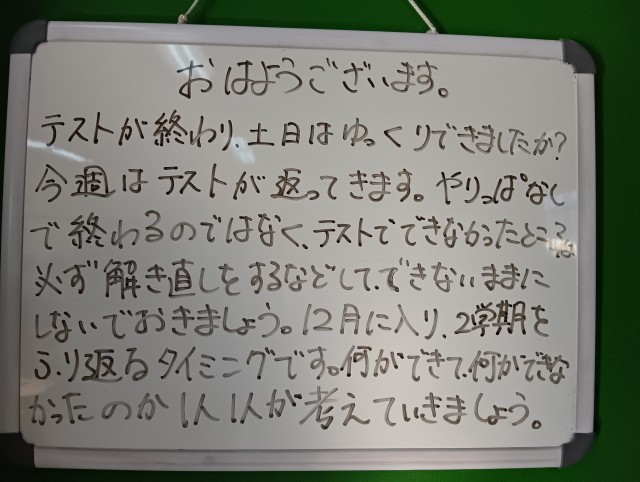 おはようございます。
テストが終わり、土日はゆっくりできましたか?
今週はテストが返ってきます。やりっぱなし
で終わるのではなく、テストでできなかったところは
必ず解き直しをするなどして、できないままに
しないでおきましょう。12月に入り、2学期を
ふり返るタイミングです。何ができて、何ができな
かったのか1人1人が考えていきましょう。